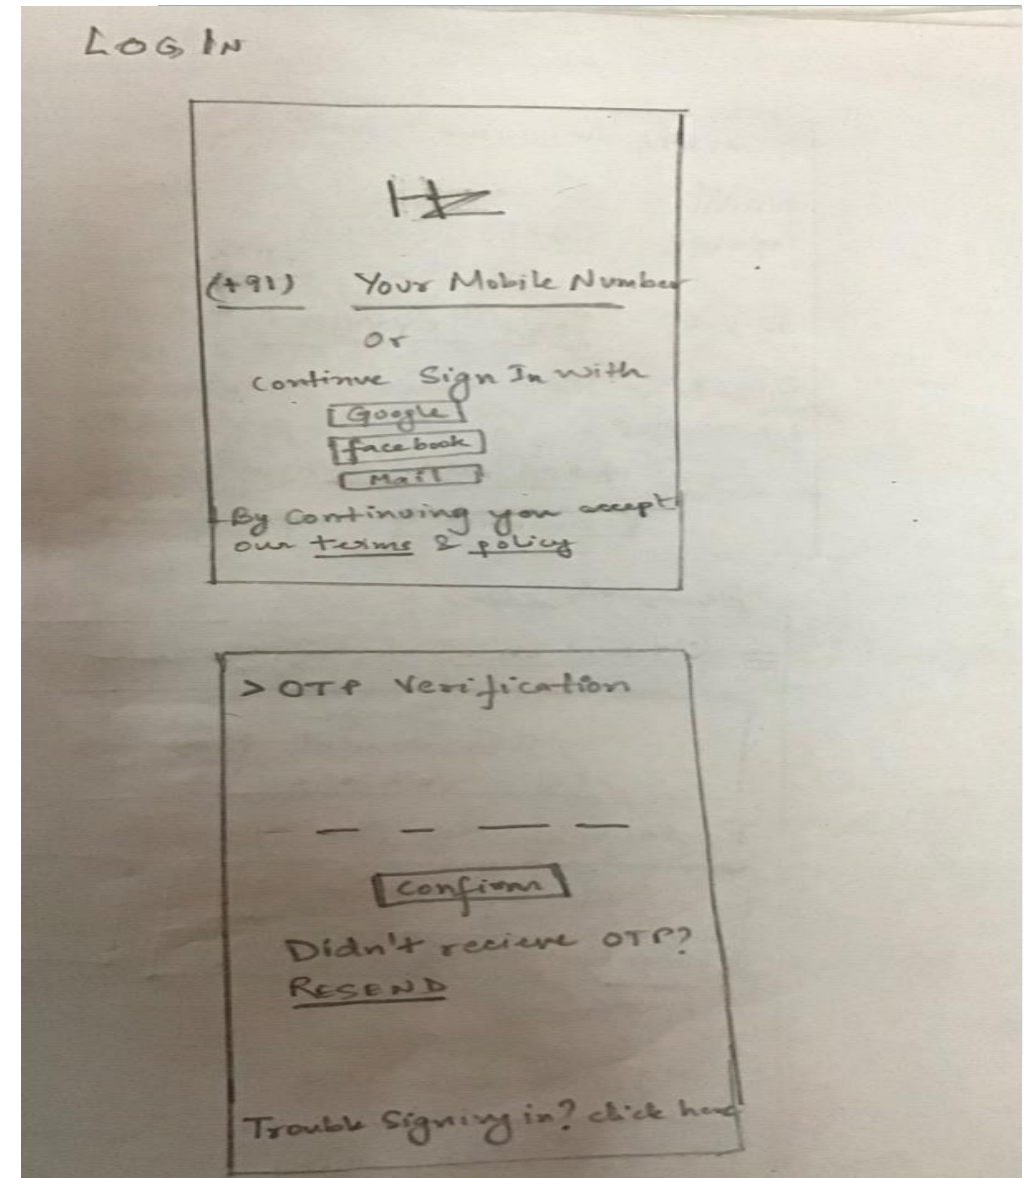 LOGIN
HZ
(+91) Your Mobile Number
Or
Continue Sign In with
Google
facebook
Mail
By Continuing you accept
our terms & policy
> OTP Verification
Confirm
Didn't recieve OTP?
RESEND
Trouble Signing in? click here